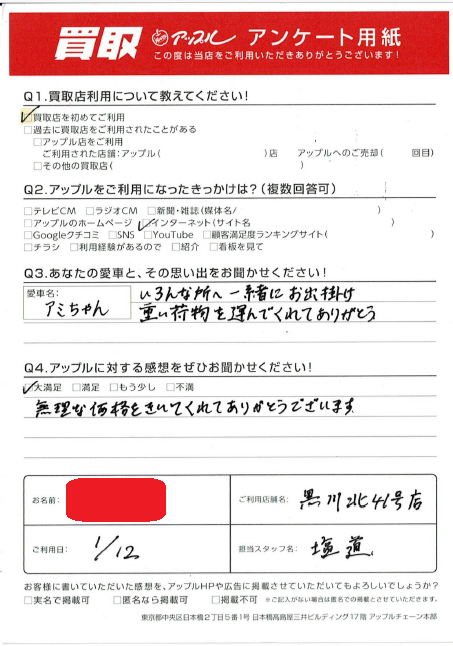 買取 アップル アンケート用紙
この度は当店をご利用いただきありがとうございます!
Q1.買取店利用について教えてください!
☑買取店を初めてご利用
□過去に買取店をご利用されたことがある
□アップル店をご利用
ご利用された店舗:アップル( )店 アップルへのご売却( 回目)
□その他の買取店( )
Q2.アップルをご利用になったきっかけは?(複数回答可)
□テレビCM □ラジオCM □新聞・雑誌(媒体名/ )
□アップルのホームページ ☑インターネット(サイト名 )
□Googleクチコミ □SNS □YouTube □顧客満足度ランキングサイト( )
□チラシ □利用経験があるので □紹介 □看板を見て
Q3.あなたの愛車と、その思い出をお聞かせください!
愛車名:
アミちゃん
いろんな所へ一緒にお出掛け
重い荷物を運んでくれてありがとう
Q4.アップルに対する感想をぜひお聞かせください!
☑大満足 □満足 □もう少し □不満
無理な価格をきいてくれてありがとうございます
お名前:
ご利用店舗名: 黒川北46号店
ご利用日: 1/12
担当スタッフ名: 塩道
お客様に書いていただいた感想を、アップルHPや広告に掲載させていただいてもよろしいでしょうか?
□実名で掲載可 □匿名なら掲載可 □掲載不可 ※ご記入がない場合は匿名での掲載とさせていただきます。
東京都中央区日本橋2丁目5番1号 日本橋高島屋三井ビルディング17階 アップルチェーン本部